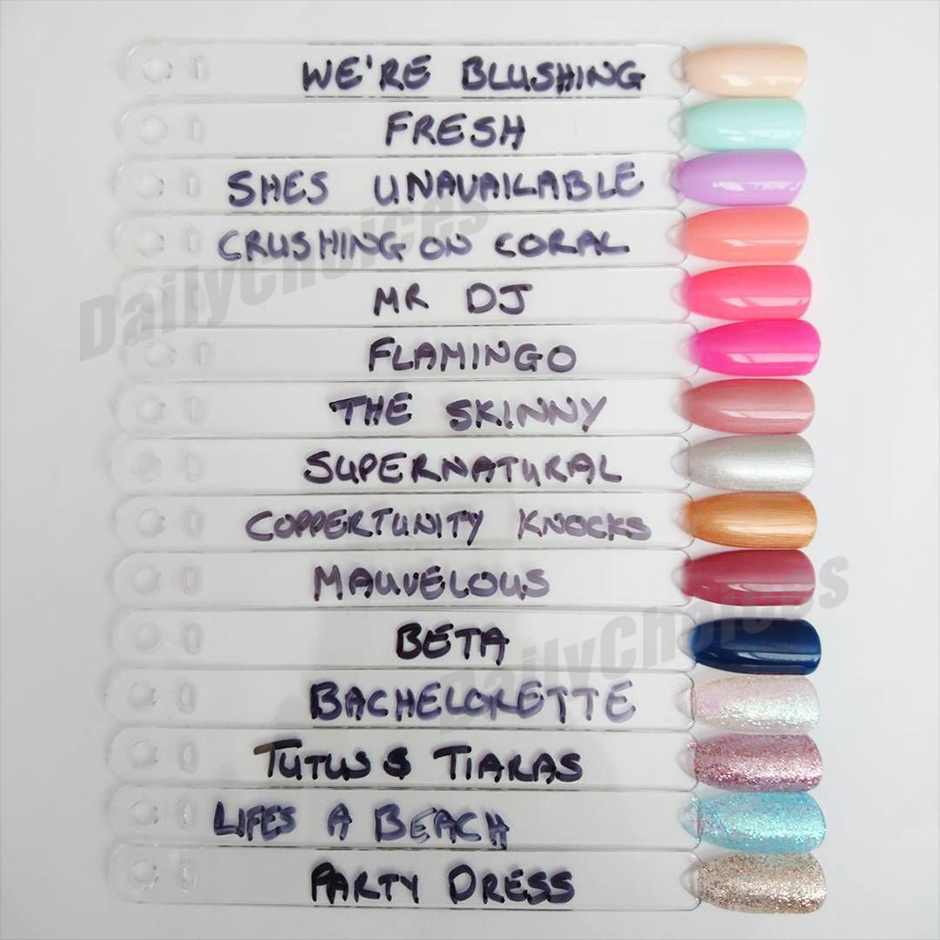 WE'RE BLUSHING
FRESH
SHES UNAVAILABLE
CRUSHING ON CORAL
MR DJ
FLAMINGO
THE SKINNY
SUPERNATURAL
COPPERTUNITY KNOCKS
MAUVELOUS
BETA
BACHELORETTE
TUTUS & TIARAS
LIFES A BEACH
PARTY DRESS
DailyChoices
DailyChoices